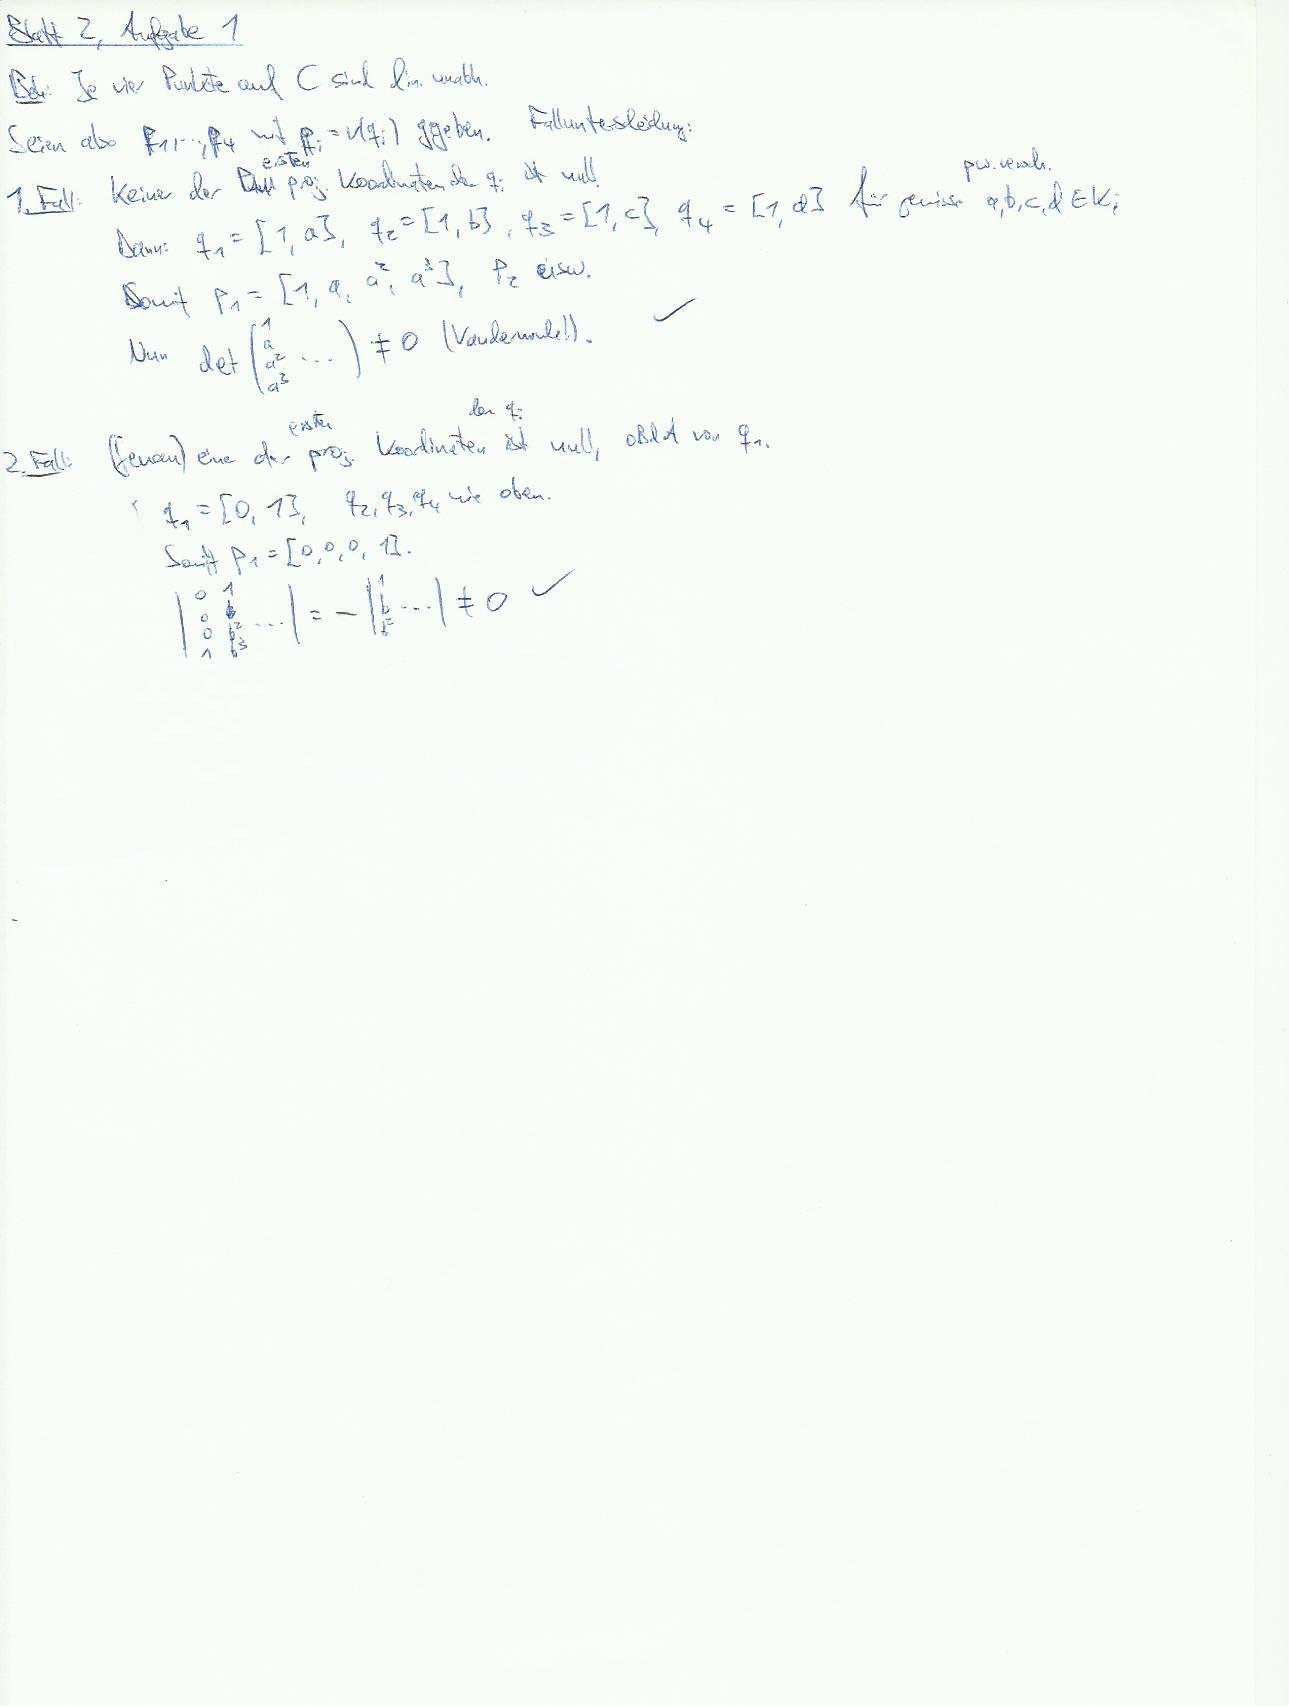 Blatt 2, Aufgabe 1
Beh: Je vier Punkte auf C sind lin. unabh.
Seien also p₁,...,p₄ mit pᵢ = ν(qᵢ) ggeben. Fallunterscheidung:
1. Fall: Keine der ersten proj. Koordinaten der qᵢ ist null.
Dann: q₁ = [1, a], q₂ = [1, b], q₃ = [1, c], q₄ = [1, d] für gewisse pw. versch. a,b,c,d ∈ K;
Somit p₁ = [1, a, a², a³], p₂ usw.
Nun det (1 a a² a³ ...) ≠ 0 (Vandermonde!). ✓
2. Fall: (Genau) eine der ersten proj. Koordinaten der qᵢ ist null, oBdA von q₁.
q₁ = [0, 1], q₂, q₃, q₄ wie oben.
Somit p₁ = [0, 0, 0, 1].
|0 1
0 b
0 b² ...
1 b³| = - |1 b b² ...| ≠ 0 ✓